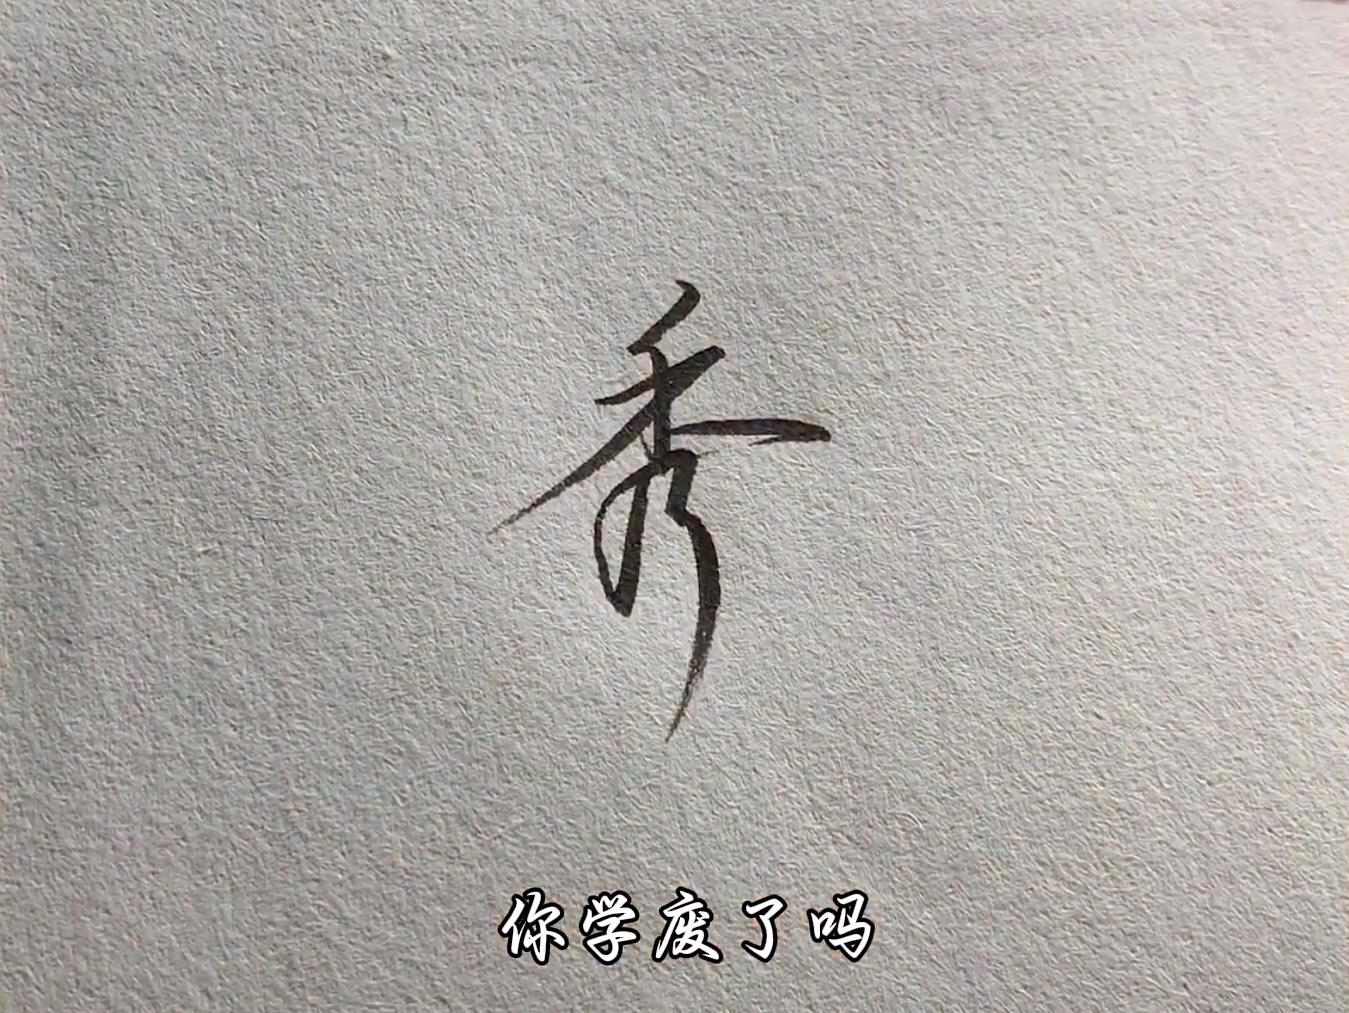 秀
你学废了吗